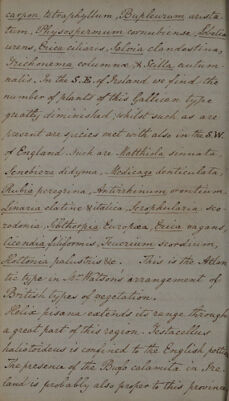 carpon tetraphyllum, Bupleurum arista
tum, Physospermum cornubiense, Lobelia
urens, Erica ciliaris, Salvia clandestina,
Trichonema columnæ & Scilla autum
nalis. In the S.E. of Ireland we find the
number of plants of this Gallican type
greatly diminished, whilst such as are
present are species met with also in the S.W.
of England. Such are Matthiola sinuata,
Senebiera didyma, Medicago denticulata,
Rubia peregrina, Antirrhinum orontium,
Linaria elatine & italica, Scrophularia sco
rodonia, Sibthorpia Europæa, Erica vagans,
Cicendia filiformis, Teucrium scordium,
Hottonia palustris &c. This is the Atlan
tic type in Mr Watson's arrangement of
British types of vegetation.
Helix pisana extends its range through
a great part of this region. Testacellus
haliotoideus is confined to the English portion
The presence of the Bufo calamita in Ire-
land is probably also proper to this province